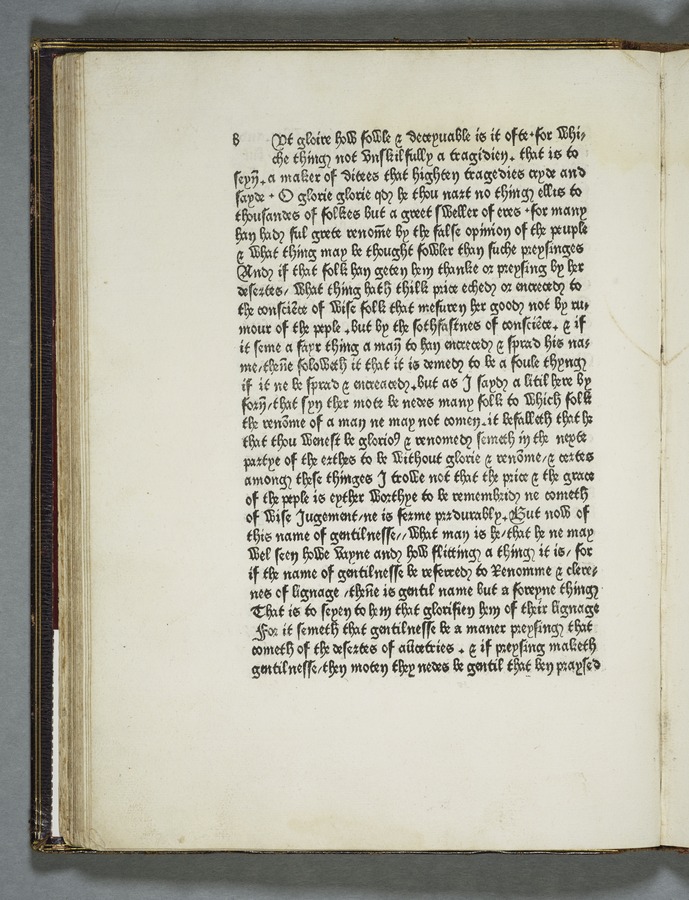 B Vt gloire how fowle & deceyuable is it ofte·for whi,
che thing not vnskilfully a tragidien. that is to
seyn̄. a maker of ditees that highten tragedies cryde and
sayde · O glorie glorie qd he thou nart no thing ellis to
thousandes of folkes but a greet sweller of eres ·for many
han had ful grete renom̄e by the false opinion of the peuple
& what thing may be thought fowler than suche preysinges
And if that folk han geten hem thanke or preysing by her
desertes/ what thing hath thilk price eched or encreced to
the consciēce of wise folk that mesuren her good not by ru,
mour of the peple .but by the sothfastnes of consciēce. & if
it seme a fayr thing a man̄ to han encreced & sprad his na,
me/thēne foloweth it that it is demed to be a foule thyng
if it ne be sprad & encreaced.but as I sayd a litil here by
forn̄/that syn ther mote be nedes many folk to which folk
the renōme of a man ne may not comen.it befalleth that he
that thou wenest be glorioꝰ & renomed semeth in the nexte
partye of the erthes to be without glorie & renōme/& certes
among these thinges I trowe not that the price & the grace
of the peple is eyther worthye to be remembrid ne cometh
of wise Jugement/ne is ferme perdurably.But now of
this name of gentilnesse// what man is he/that he ne may
wel seen howe vayne and how flitting a thing it is/ for
if the name of gentilnesse be referred to Renomme & clere,
nes of lignage /thēne is gentil name but a foreyne thing
That is to seyen to hem that glorifien hem of their lignage
For it semeth that gentilnesse be a maner preysing that
cometh of the desertes of aūcetries . & if preysing maketh
gentilnesse/then moten they nedes be gentil that ben praysed